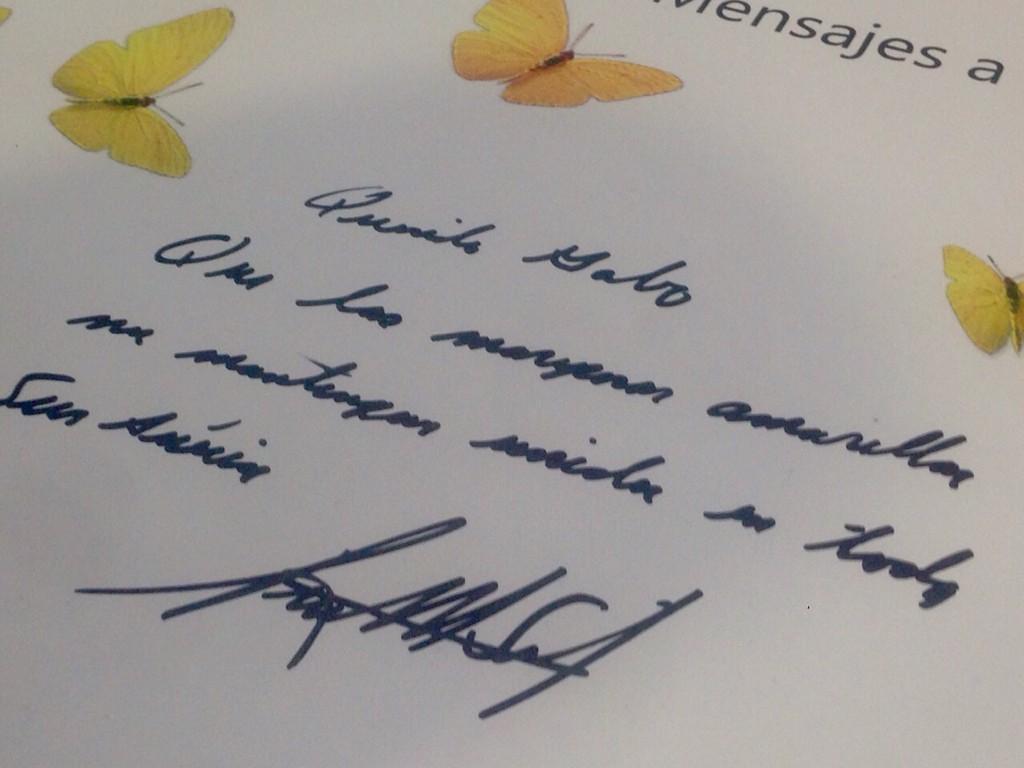 Mensajes a
Querido Gabo
Que las mariposas amarillas
nos mantengan unidos en
Sur América